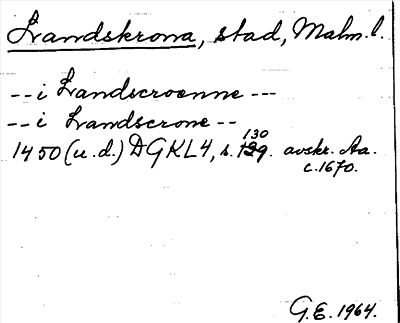 Landskrona, stad, Malm. l.
-- i Landscroenne ---
-- i Landscrone --
1450 (u.d.) DGKL4, s. 130 avskr. Aa.
c. 1670.
G.E. 1964.